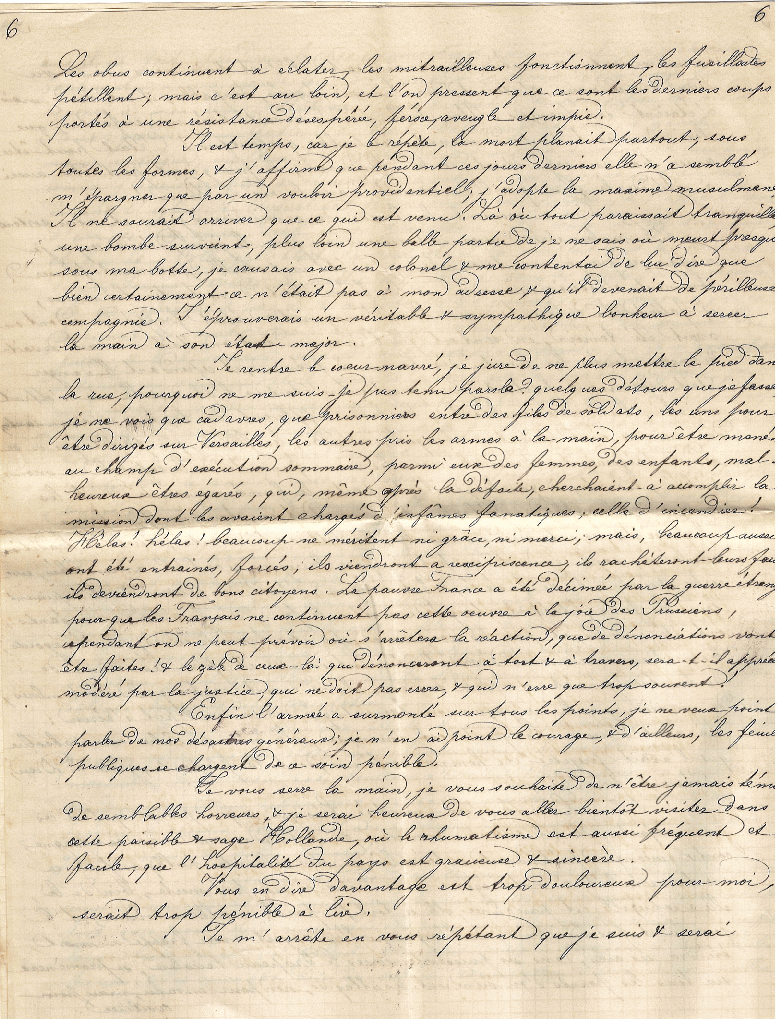 6 6
Les obus continuent à éclater, les mitrailleuses fonctionnent, les fusillades
pétillent; mais c'est au loin, et l'on pressent que ce sont les derniers coups
portés à une résistance désespérée, féroce, aveugle et impie.
Il est temps, car je le répète, la mort planait partout, sous
toutes les formes, & j'affirme que pendant ces jours derniers elle n'a semblé
m'épargner que par un vouloir providentiel; j'adopte la maxime musulmane
Il ne saurait arriver que ce qui est venu! Là où tout paraissait tranquille
une bombe survient, plus loin une balle partie de je ne sais où meurt presqu
sous ma botte, je causais avec un colonel & me contentai de lui dire que
bien certainement ce n'était pas à mon adresse & qu'il devenait de périlleuse
compagnie. J'éprouverais un véritable & sympathique bonheur à serrer
la main à son état major.
Je rentre le coeur navré, je jure de ne plus mettre le pied dans
la rue, pourquoi ne me suis-je pas tenu parole? quelques détours que je fasse
je ne vois que cadavres, que prisonniers entre des files de soldats, les uns pour
être dirigés sur Versailles, les autres pris les armes à la main, pour être menés
au champ d'exécution sommaire, parmi eux des femmes, des enfants, mal-
heureux êtres égarés, qui, même après la défaite, cherchaient à accomplir la
mission dont les avaient chargés d'infâmes fanatiques; celle d'incendier!
Hélas! hélas! beaucoup ne méritent ni grâce, ni merci; mais, beaucoup aussi
ont été entrainés, forcés; ils viendront a resipiscence; ils rachèteront leurs fau
ils deviendront de bons citoyens. La pauvre France a été décimée par la guerre étrang
pour que les Français ne continuent pas cette oeuvre à la joie des Prussiens,
cependant on ne peut prévoir où s'arrêtera la réaction, que de dénonciations vont
être faites! & le zèle de ceux-là qui dénonceront à tort & à travers, sera-t-il appréc
modéré par la justice, qui ne doit pas errer, & qui n'erre que trop souvent!
Enfin l'armée a surmonté sur tous les points, je ne veux point
parler de nos désastres généraux; je n'en ai point le courage, & d'ailleurs, les feuil
publiques se chargent de ce soin pénible.
Je vous serre la main, je vous souhaite de n'être jamais témo
de semblables horreurs, & je serai heureux de vous aller bientôt visiter dans
cette paisible & sage Hollande, où le rhumatisme est aussi fréquent et
facile, que l'hospitalité du pays est gracieuse & sincère.
Vous en dire davantage est trop douloureux pour moi,
serait trop pénible à lire.
Je m'arrête en vous répétant que je suis & serai